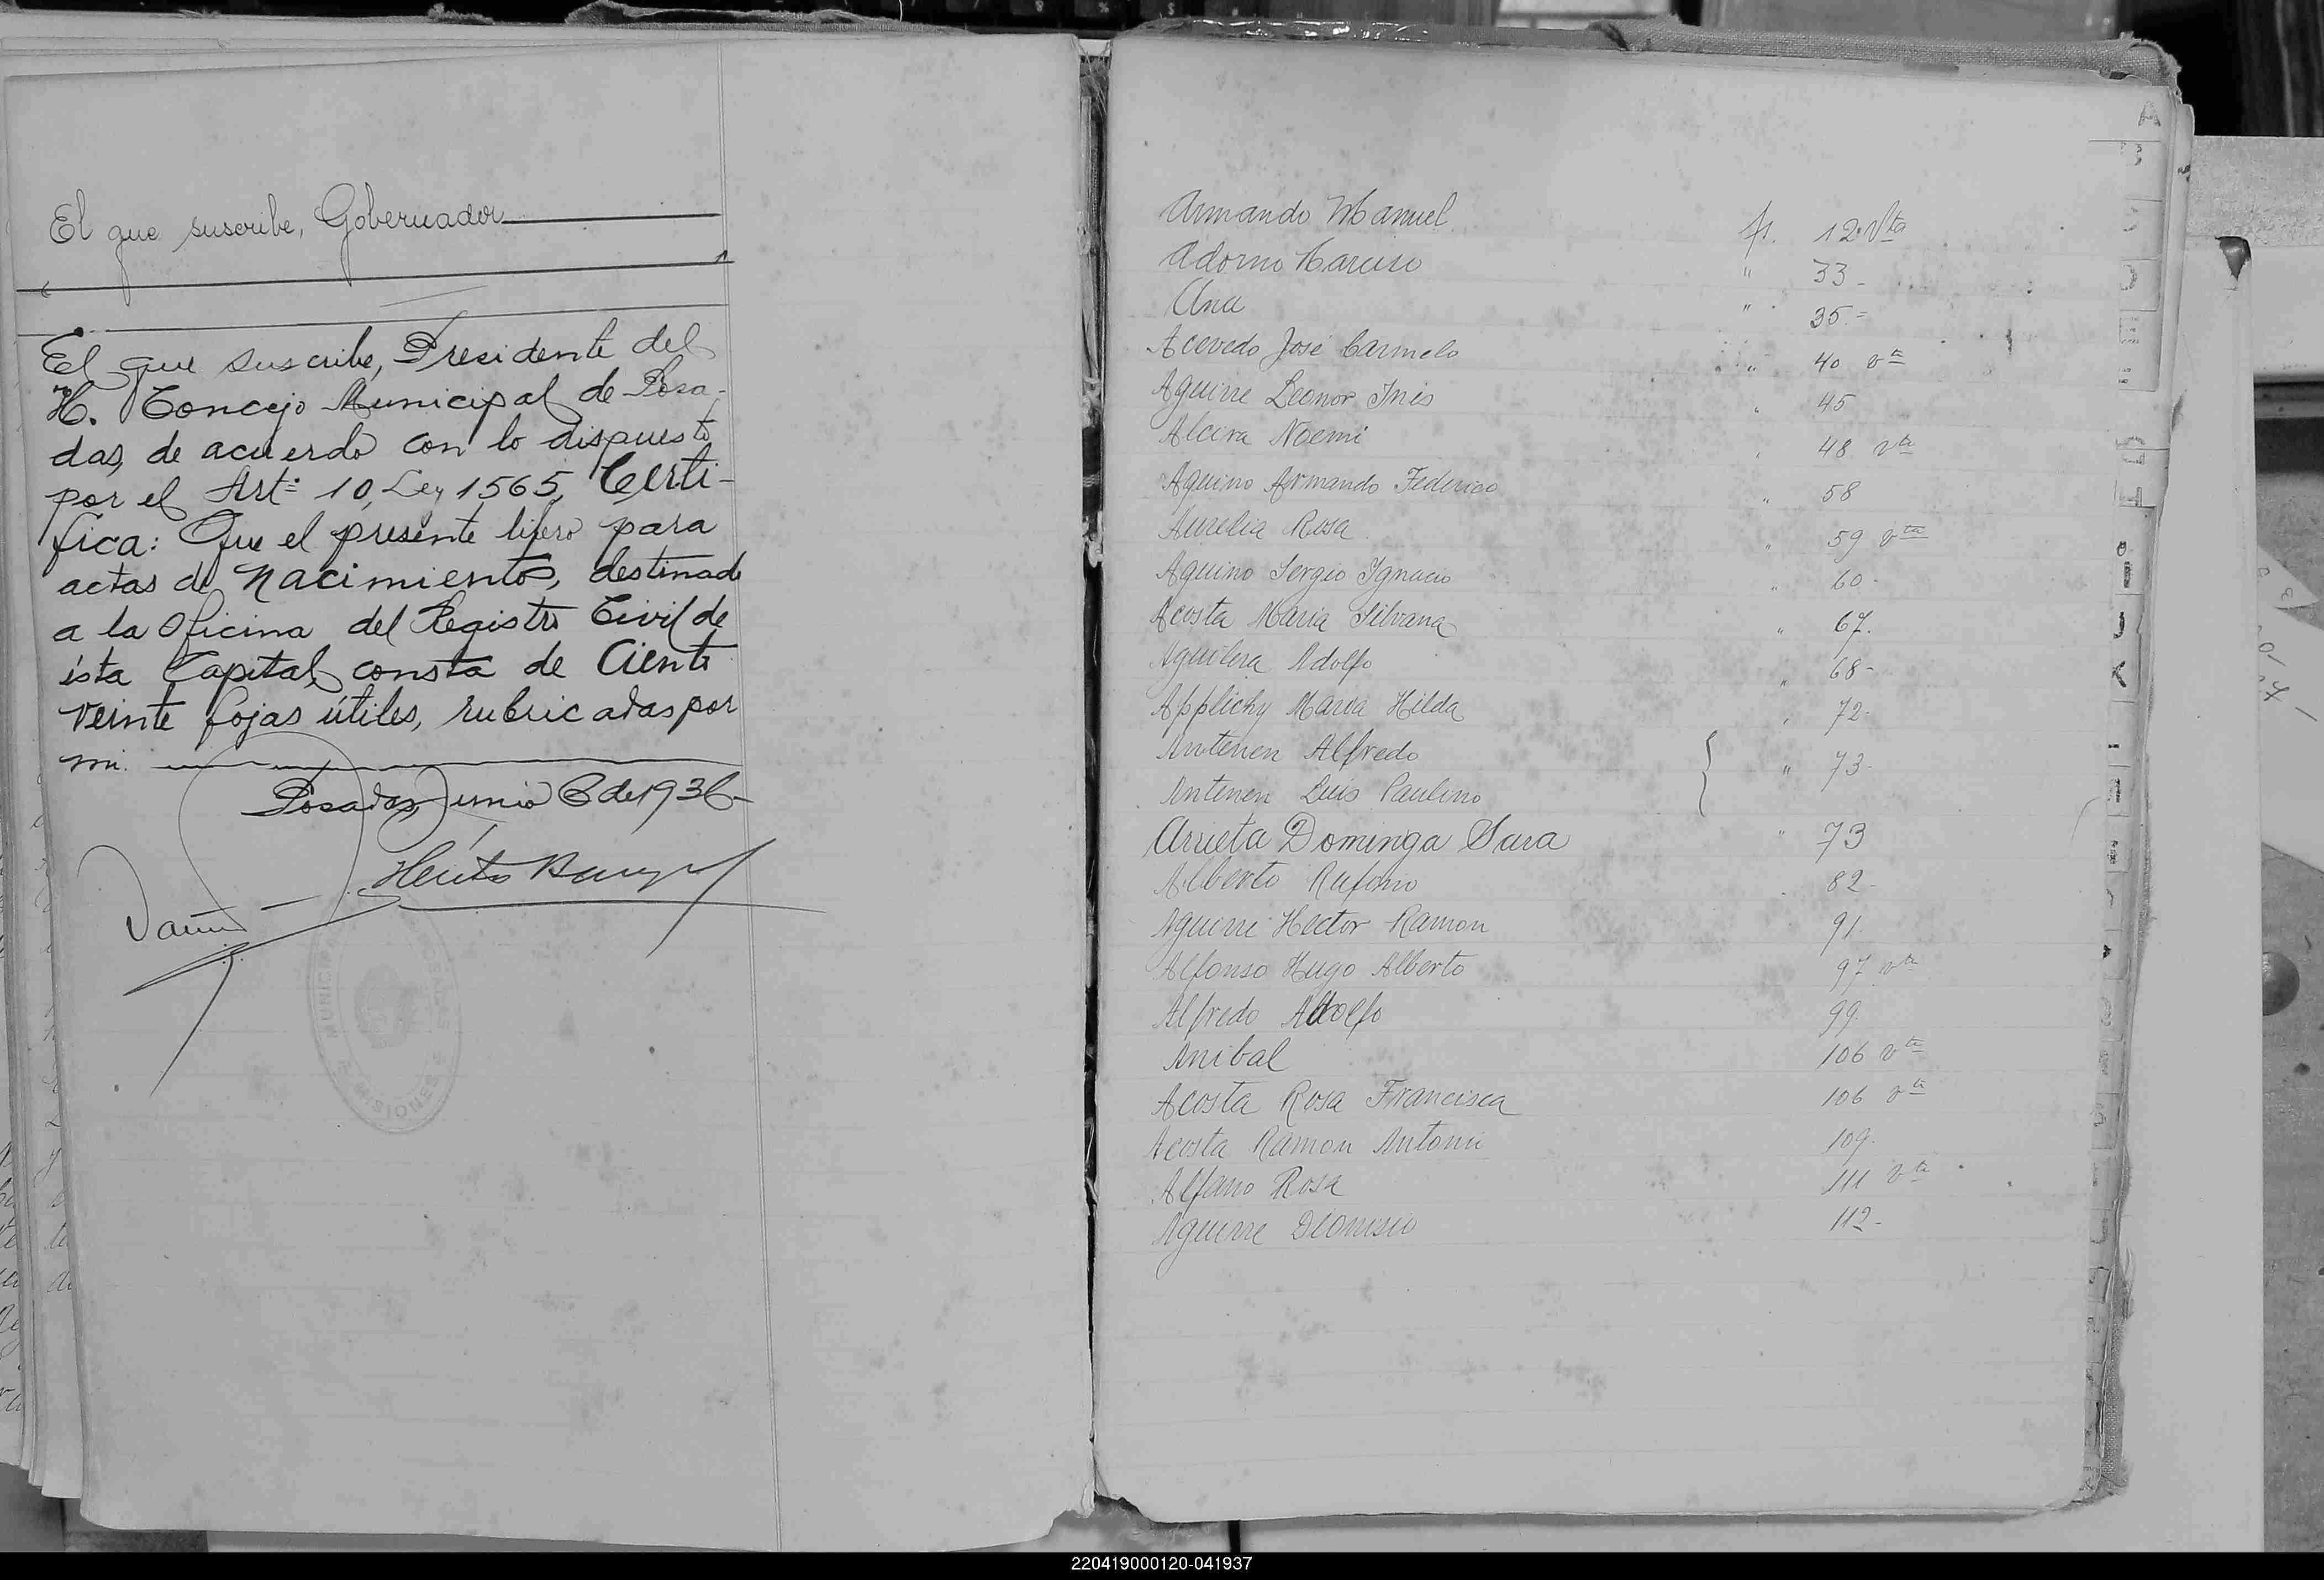 El que suscribe, Gobernador
El que suscribe, Presidente del
H. Concejo Municipal de Posa-
das, de acuerdo con lo dispuesto
por el Art: 10, Ley 1565, Certi-
fica: Que el presente libro para
actas de Nacimientos, destinado
a la Oficina del Registro Civil de
ésta Capital, consta de Ciento
veinte fojas útiles, rubricadas por
mi.
Posadas, Junio 6 de 1936-
MUNICIPAL
POSADAS
MISIONES
A
Armando Manuel fs. 12 Vta
Adorno Narciso " 33 -
Ana " 35.-
Acevedo José Carmelo " 40 vta
Aguirre Leonor Inés " 45
Alcira Noemi " 48 vta
Aquino Armando Federico " 58
Aurelia Rosa " 59 vta
Aquino Sergio Ignacio " 60-
Acosta Maria Silvana " 67.
Aguilera Adolfo " 68-
Applichy Maria Hilda " 72-
Antenen Alfredo
" 73-
Antenen Luis Paulino
Arrieta Dominga Sara " 73
Alberto Rufino 82-
Aguirre Hector Ramon 91.
Alfonso Hugo Alberto 97 vta
Alfredo Adolfo 99.
Anibal 106 vta
Acosta Rosa Francisca 106 vta
Acosta Ramon Antonio 109.
Alfano Rosa 111 vta
Aguirre Dionisio 112-
220419000120-041937